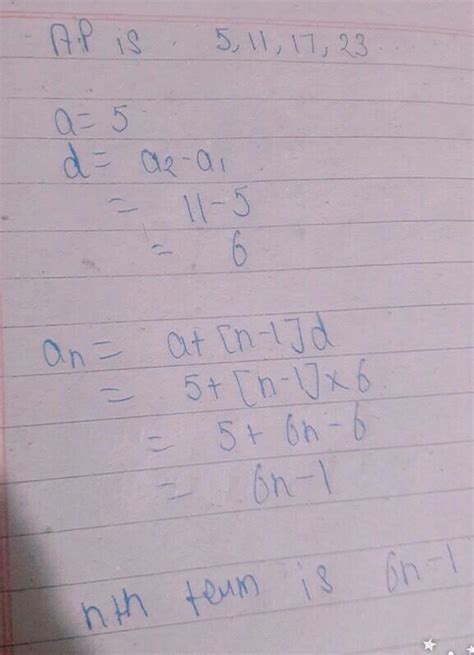 A.P is 5, 11, 17, 23
a = 5
d = a2 - a1
= 11 - 5
= 6
an = a + [n-1]d
= 5 + [n-1] × 6
= 5 + 6n - 6
= 6n - 1
nth term is 6n - 1